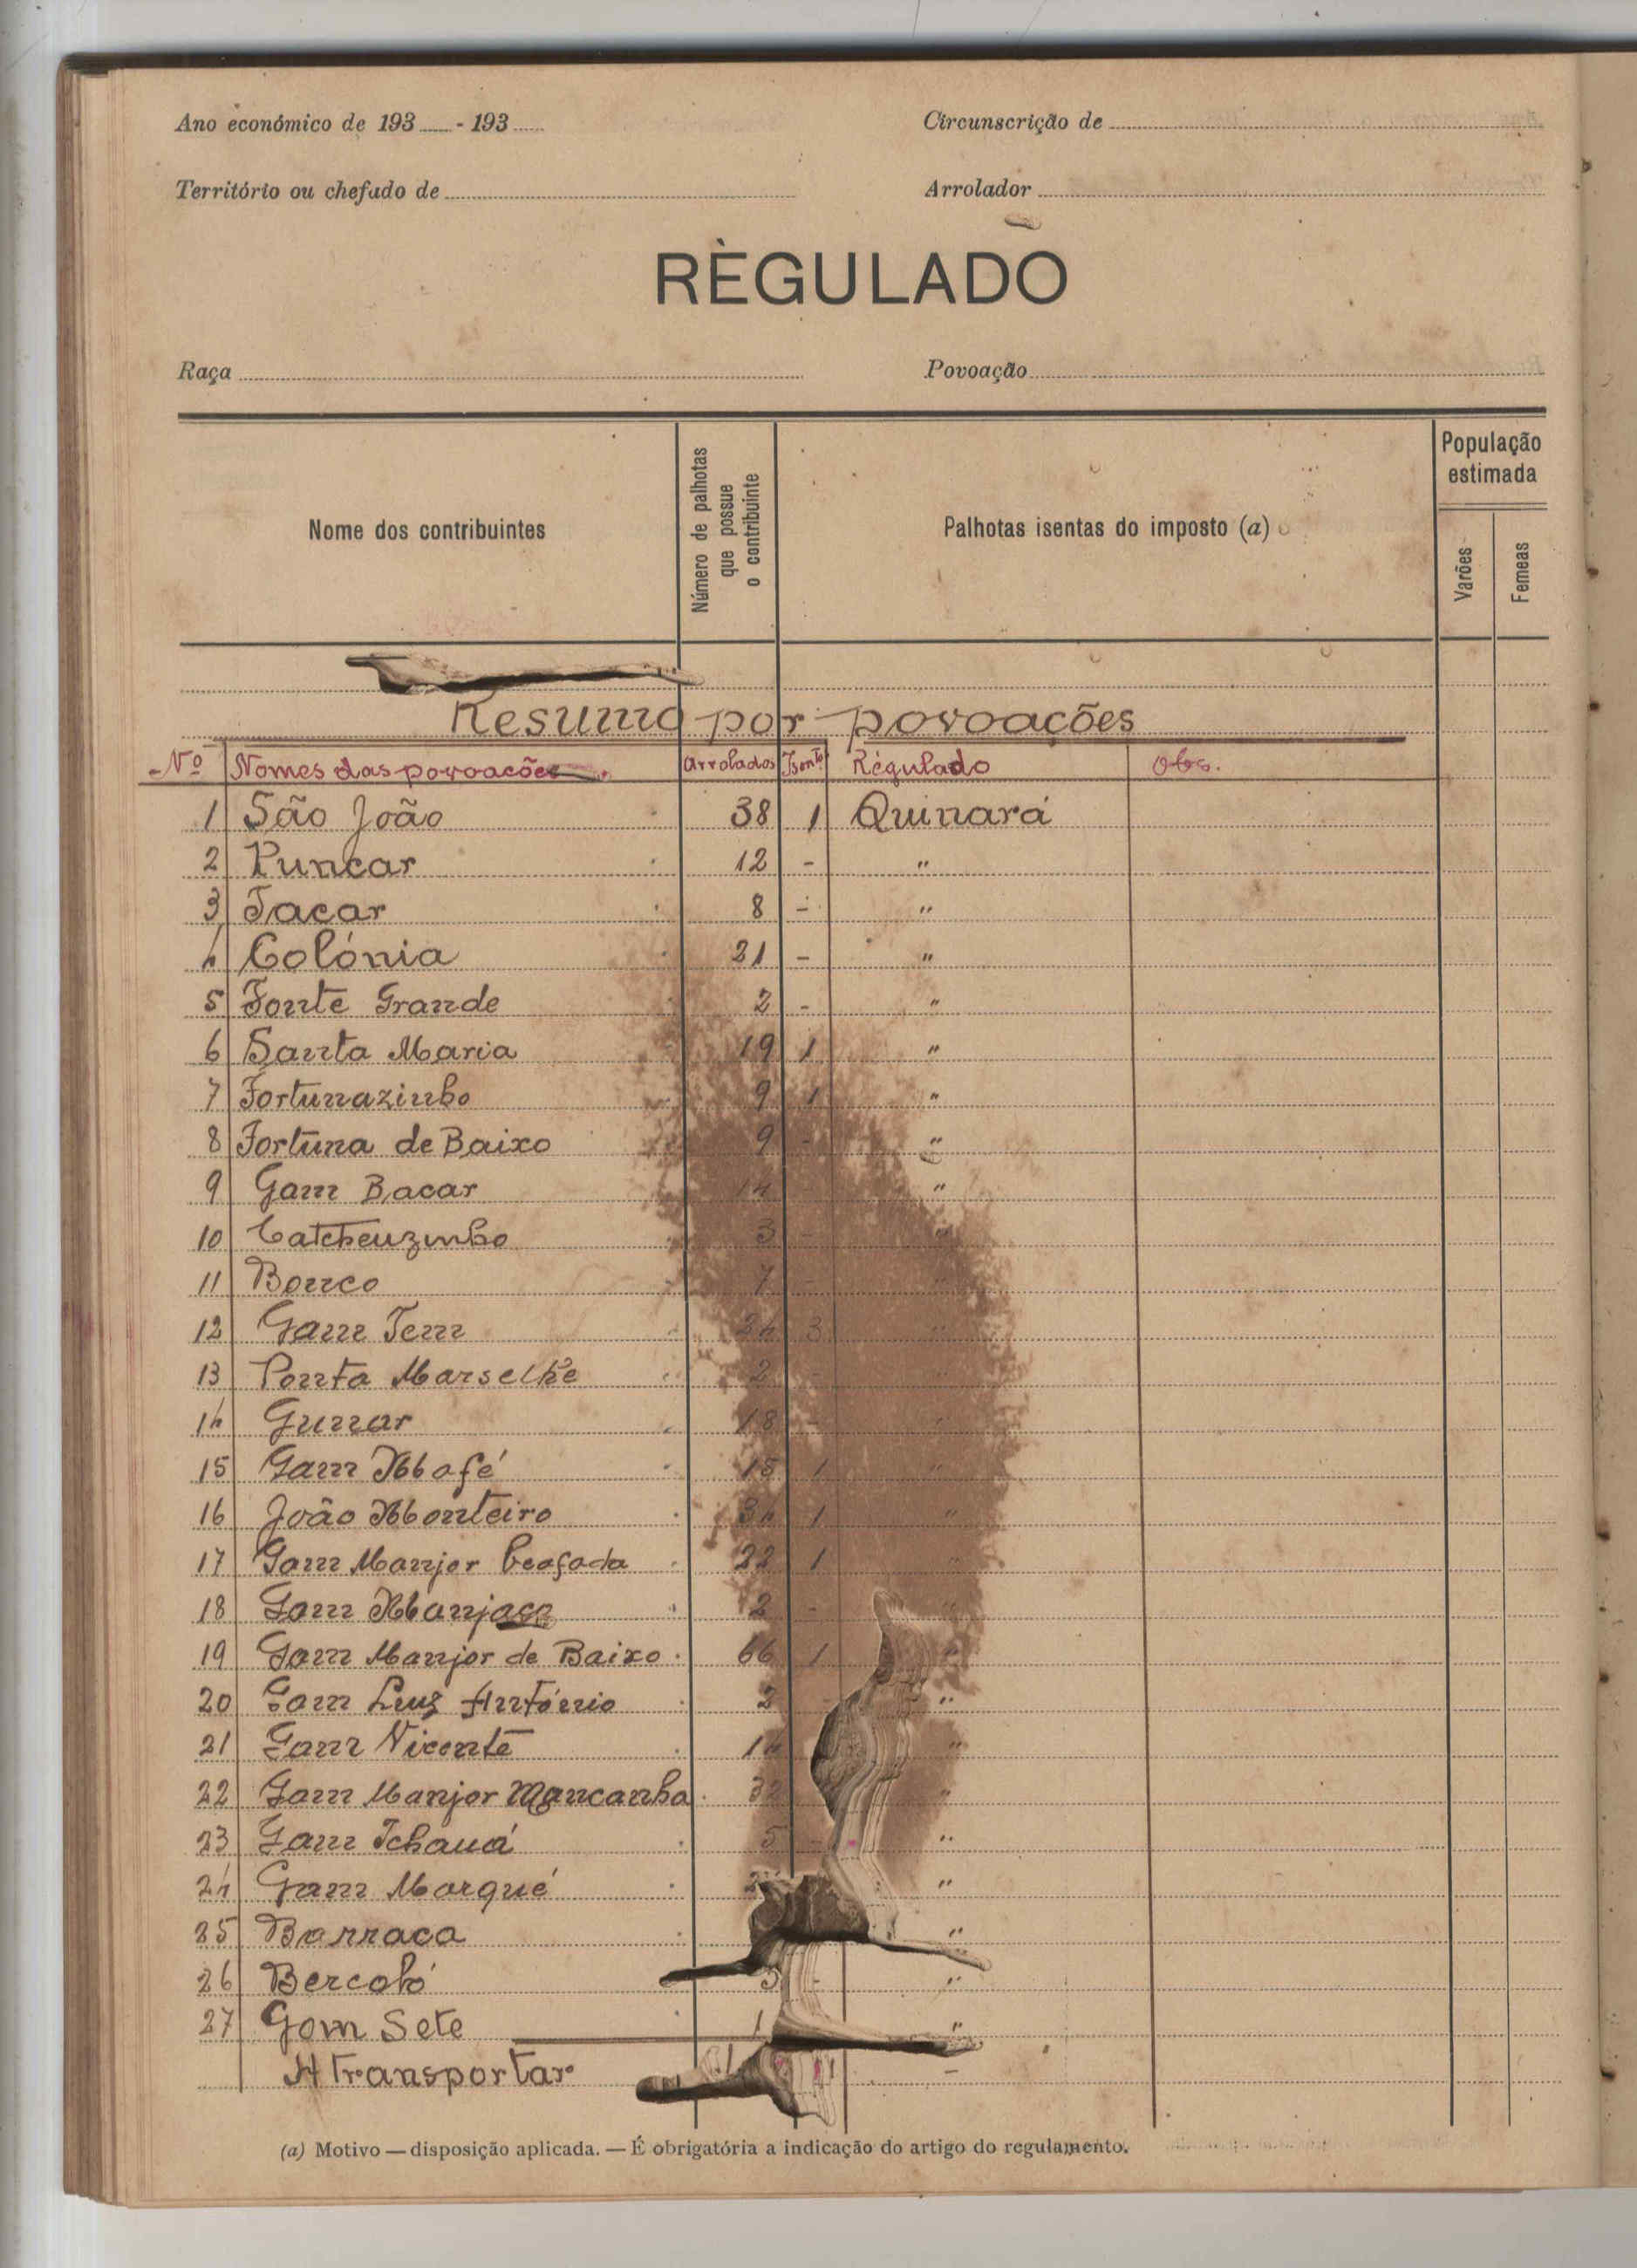 Ano económico de 193 - 193
Circunscrição de
Território ou chefado de
Arrolador
RÈGULADO
Raça
Povoação
Nome dos contribuintes
Número de palhotas que possue o contribuinte
Palhotas isentas do imposto (a)
População estimada
Varões
Femeas
Resumo por povoações
Nº Nomes das povoações Arrolados Isentº Régulado Obs.
1 São João 38 1 Quinará
2 Puncar 12 - "
3 Tacar 8 - "
4 Colónia 21 - "
5 Fonte Grande 2 - "
6 Santa Maria 19 1 "
7 Fortunazinho 9 1 "
8 Fortuna de Baixo 9 - "
9 Gam Bacar 14 "
10 Catcheuzinho 3 - "
11 Bonco 7 - "
12 Gam Tem 24 3 "
13 Ponta Marselhe 2 - "
14 Gunar 18 - "
15 Gam Mafé 15 1 "
16 João Monteiro 34 1 "
17 Gam Manjor beafada 22 1 "
18 Gam Manjaco 2 - "
19 Gam Manjor de Baixo 66 1 "
20 Gam Luiz António 2 - "
21 Gam Vicente 14 "
22 Gam Manjor Mancanha 32 "
23 Gam Tchauá 5 - "
24 Gam Marqué "
25 Barraca "
26 Bercoló 5 - "
27 Gam Sete 1 "
A transportar
(a) Motivo — disposição aplicada. — É obrigatória a indicação do artigo do regulamento.